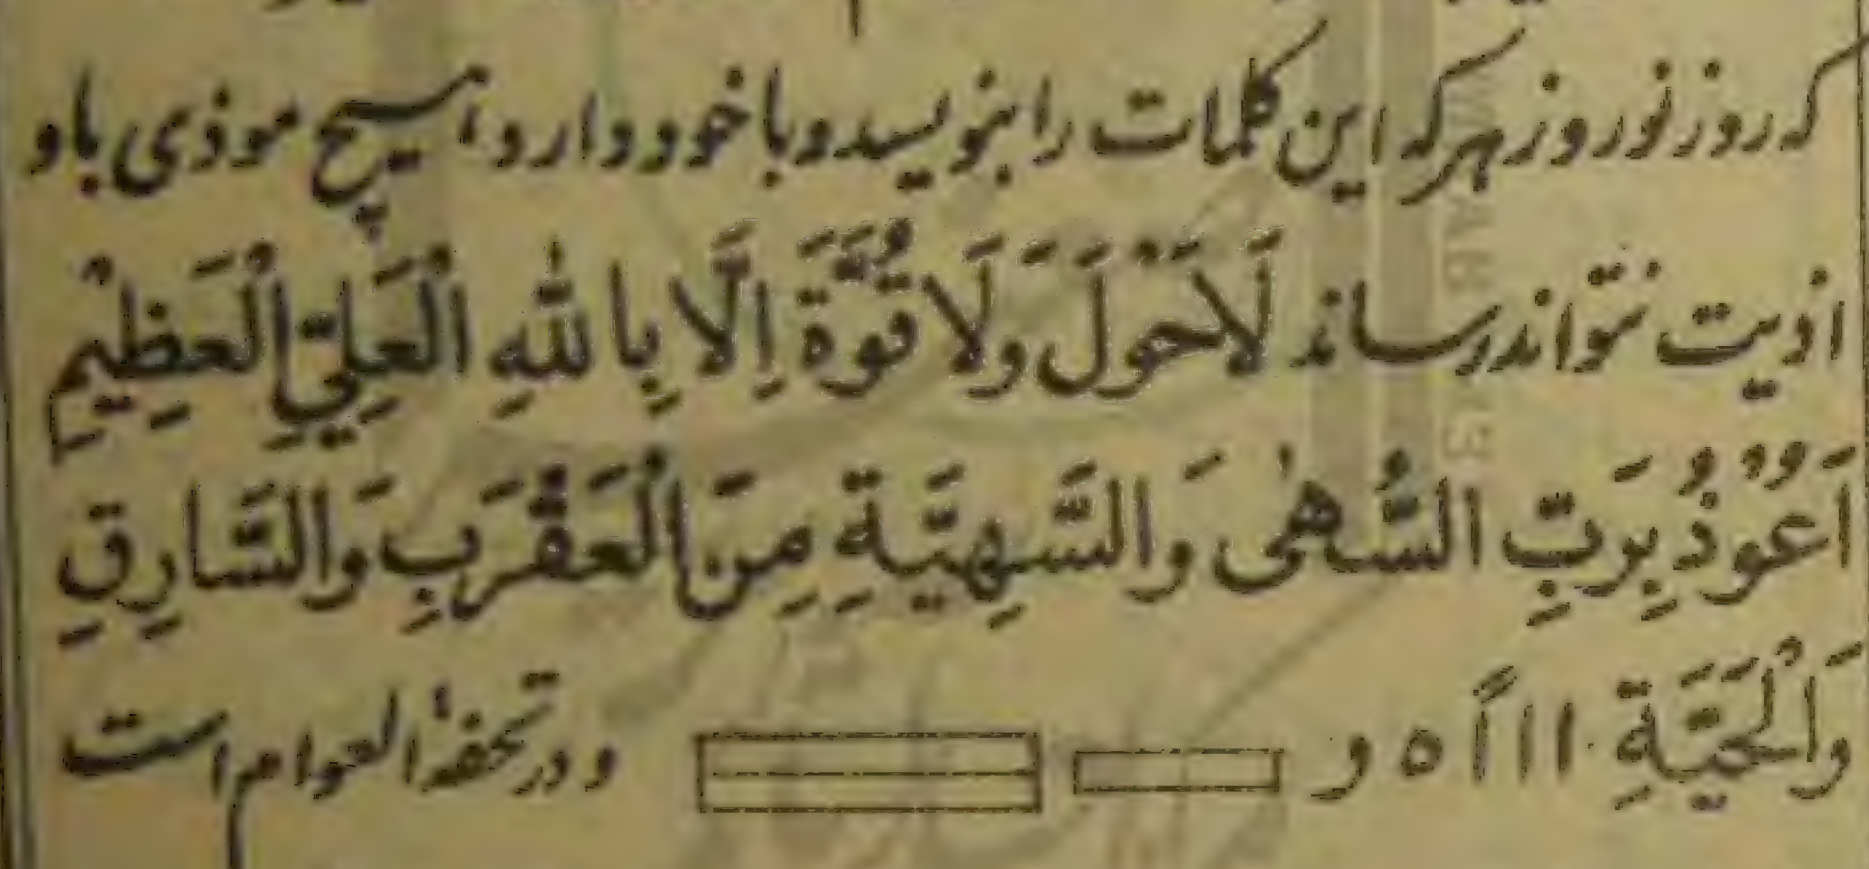 که روز نوروز هر که این کلمات را بنویسد و با خود دارد هیچ موذی باو
اذیت نتواند رساند لَاحَوْلَ وَلَا قُوَّةَ اِلَّا بِاللهِ الْعَلِيِّ الْعَظِيْمِ
اَعُوْذُ بِرَبِّ السُّهٰى وَالسَّهِيَّةِ مِنَ الْعَقْرَبِ وَالسَّارِقِ
وَالْحَيَّةِ ١١١ ٥ و و در تحفۂ العوام است